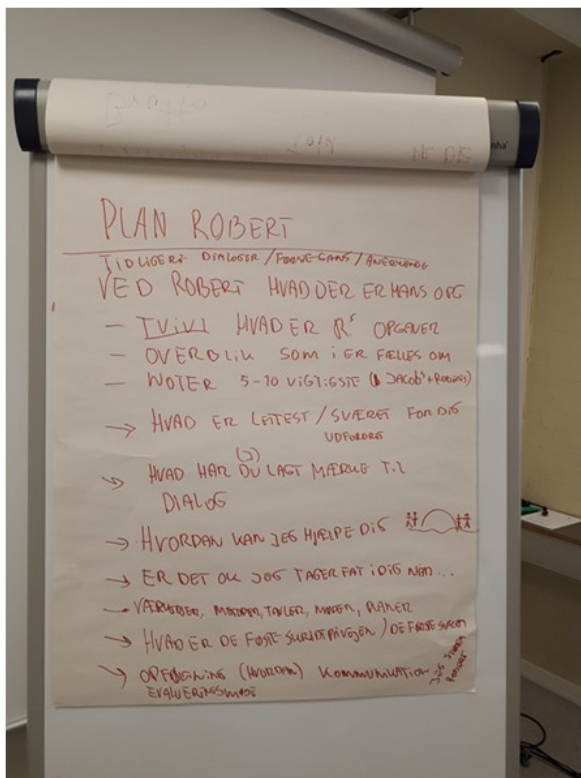 PLAN ROBERT
TIDLIGERE DIALOGER / FØRSTE GANG /
VED ROBERT HVAD DER ER HANS OPG
- TVIVL HVAD ER R's OPGAVER
- OVERBLIK SOM I ER FÆLLES OM
- NOTER 5-10 VIGTIGSTE (JACOB's + ROBERTS)
→ HVAD ER LETEST / SVÆRET FOR DIG
UDFORDRE
(J)
→ HVAD HAR DU LAGT MÆRKE TIL
DIALOG
→ HVORDAN KAN JEG HJÆLPE DIG
→ ER DET OK JEG TAGER FAT I DIG NÅR...
METODER, TAVLER, MØDER, PLANER
→ HVAD ER DE FØRSTE SKRIDT PÅ VEJEN / DE FØRSTE
→ OPFØLGNING (HVORDAN) KOMMUNIKATION
EVALUERINGSMØDE
JEG
ROBERT